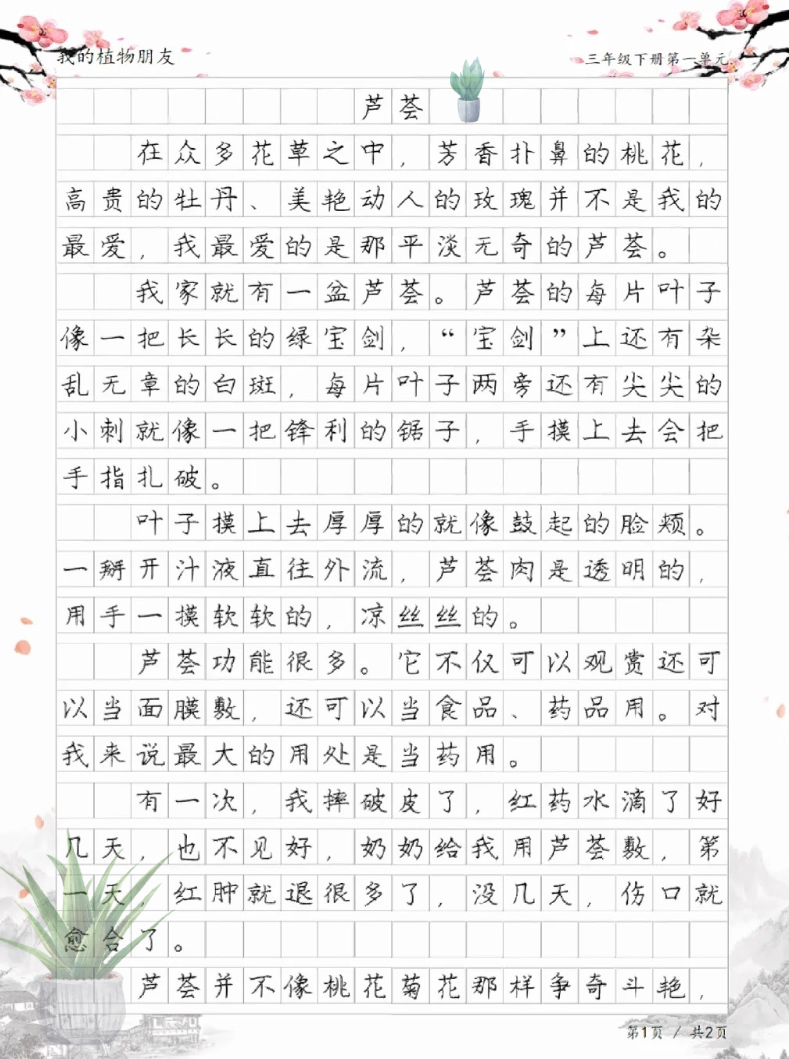 我的植物朋友
三年级下册第一单元
芦荟
在众多花草之中，芳香扑鼻的桃花，
高贵的牡丹、美艳动人的玫瑰并不是我的
最爱，我最爱的是那平淡无奇的芦荟。
我家就有一盆芦荟。芦荟的每片叶子
像一把长长的绿宝剑，“宝剑”上还有杂
乱无章的白斑，每片叶子两旁还有尖尖的
小刺就像一把锋利的锯子，手摸上去会把
手指扎破。
叶子摸上去厚厚的就像鼓起的脸颊。
一掰开汁液直往外流，芦荟肉是透明的，
用手一摸软软的，凉丝丝的。
芦荟功能很多。它不仅可以观赏还可
以当面膜敷，还可以当食品、药品用。对
我来说最大的用处是当药用。
有一次，我摔破皮了，红药水滴了好
几天，也不见好，奶奶给我用芦荟敷，第
一天，红肿就退很多了，没几天，伤口就
愈合了。
芦荟并不像桃花菊花那样争奇斗艳，
第1页 / 共2页